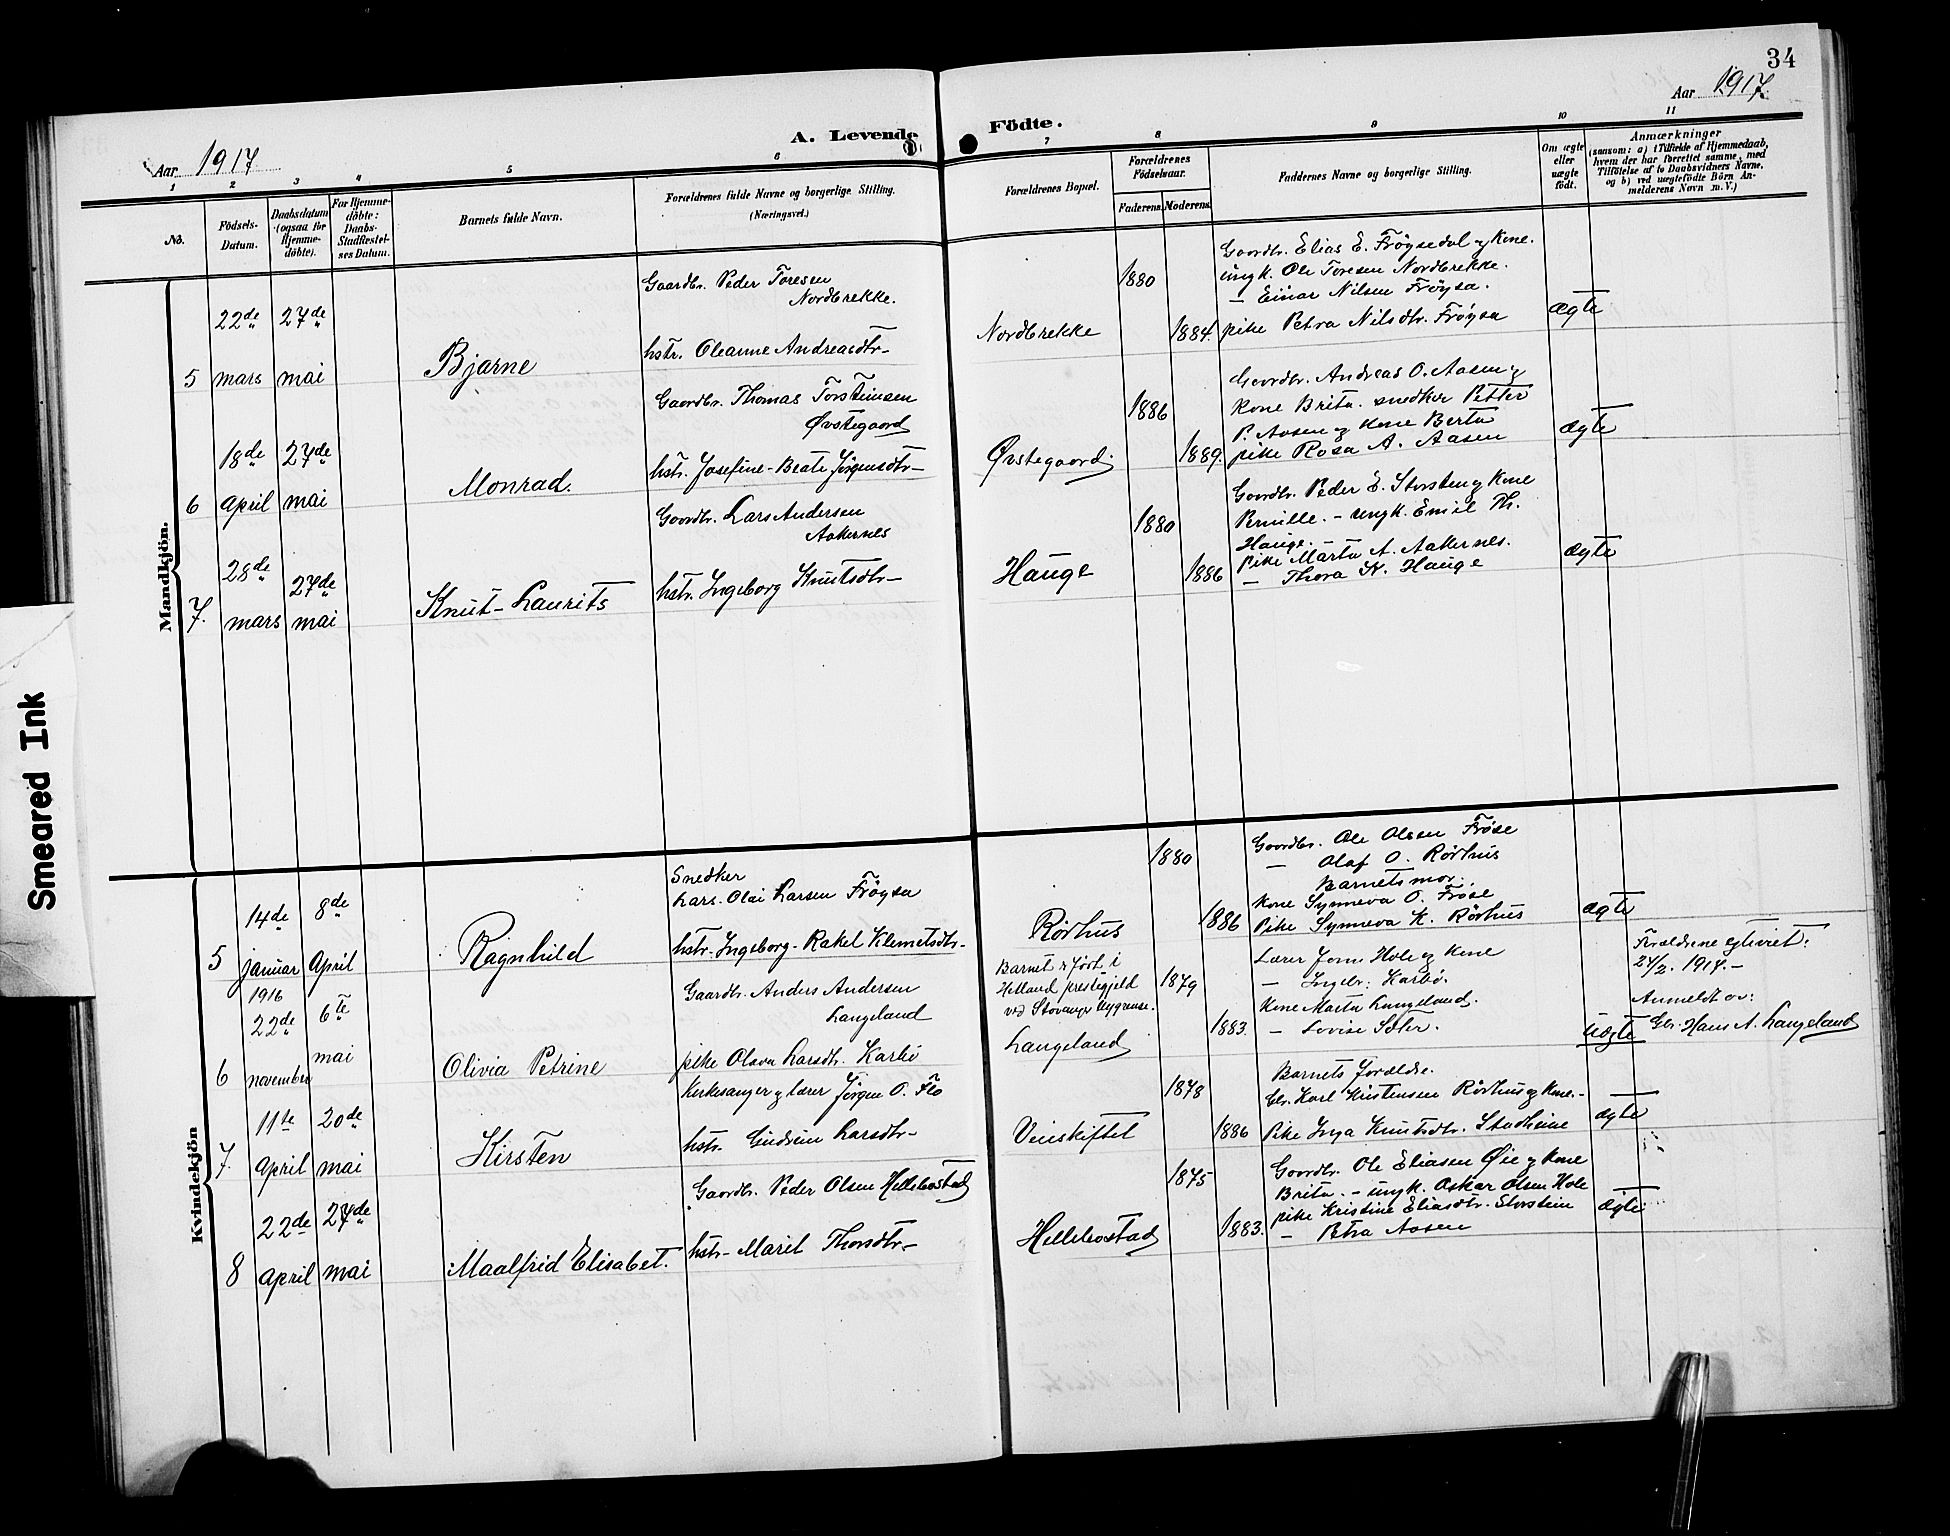 34
Aar 1917
Aar 1917.
A. Levende Födte.
1 2 3 4 5 6 7 8 9 10 11
No.
Födsels-Datum.
Daabsdatum (ogsaa for Hjemmedöbte).
For Hjemmedöbte: Daabs-Stadfæstelses Datum.
Barnets fulde Navn.
Forældrenes fulde Navne og borgerlige Stilling.
(Næringsvei.)
Forældrenes Bopæl.
Forældrenes Födselsaar.
Faderens. Moderens.
Faddernes Navne og borgerlige Stilling.
Om ægte eller uægte födt.
Anmærkninger
(saasom: a) i Tilfælde af Hjemmedaab, hvem der har forrettet samme, med Tilföielse af to Daabsvidners Navne. og b) ved uægtefödte Börn Anmelderens Navn m. V.)
Mandkjön.
5
22de mars
27de mai
Bjarne
Gaardbr. Peder Toresen
Nordbrekke.
hstr. Oleanne Andreasdtr-
Nordbrekke
1880
1884.
Gaardbr. Elias E. Frøysedal og Kone.
ungk. Ole Toresen Nordbrekke.
- Einar Nilsen Frøysa.
pike Petra Nilsdtr. Frøysa
ægte
6
18de april
27de mai
Monrad.
Gaardbr. Thomas Torsteinsen
Øvstegaard
hstr. Josefine-Beate Jørgensdtr-
Øvstegaard.
1886
1889.
Gaardbr. Andreas O. Aasen og
Kone Brita. snedker Petter
P. Aasen og Kone Berta
pike Rosa A. Aasen
ægte
7.
28de mars
27de mai
Knut-Laurits
Gaardbr. Lars Andersen
Aakernes
hstr. Ingeborg Knutsdtr-
Hauge
1880
1886
Gaardbr. Peder E. Storstein og Kone
Pernille. - ungk. Emil Th.
Hauge. -
Pike Marta A. Aakernes.
- Thora K. Hauge
ægte
Smeared Ink
Kvindekjön
5
14de januar
8de April
Ragnhild
Snedker
Lars-Olai Larsen Frøysa
hstr. Ingeborg-Rakel Klemetsdtr-
Rørhus
1880
1886
Gaardbr. Ole Olsen Frøse
- Olaf O. Rørhus
Barnets mor.
Kone Synneva O. Frøse
Pike Synneva K. Rørhus
ægte
6
1916
22de november
6te mai
Olivia Petrine
Gaardbr. Anders Andersen
Langeland
pike Olava Larsdtr. Karbø
Barnet er født i
Helland prestegjeld
ved Stavanger
Langeland
1879
1883.
Lærer Jorn Hole og Kone
- Ingebr. Karbø.
Kone Marta Langeland.
- Lovise Sæter.
uægte
Forældrene egteviet.
24/2. 1917.-
Anmeldt av:
Gbr. Hans A. Langeland
7.
11te April
20de mai
Kirsten
Kirkesanger og lærer Jørgen O. Flo
hstr. Gudrun Larsdtr-
Vinskiftet
1878
1886
Barnets forældre.
Gbr. Karl Kristensen Rørhus og Kone.-
Pike Inga Knutsdtr. Stadheim
ægte
8
22de April
27de mai
Maalfrid Elisabet.
Gaardbr. Peder Olsen Hellebostad
hstr- Marit Thorsdtr-
Hellebostad
1875
1883.
Gaardbr. Ole Eliasen Øie og Kone
Brita. - ungk. Oskar Olsen Hole
pike Kristine Eliasdtr. Storstein
- Petra Aasen
ægte